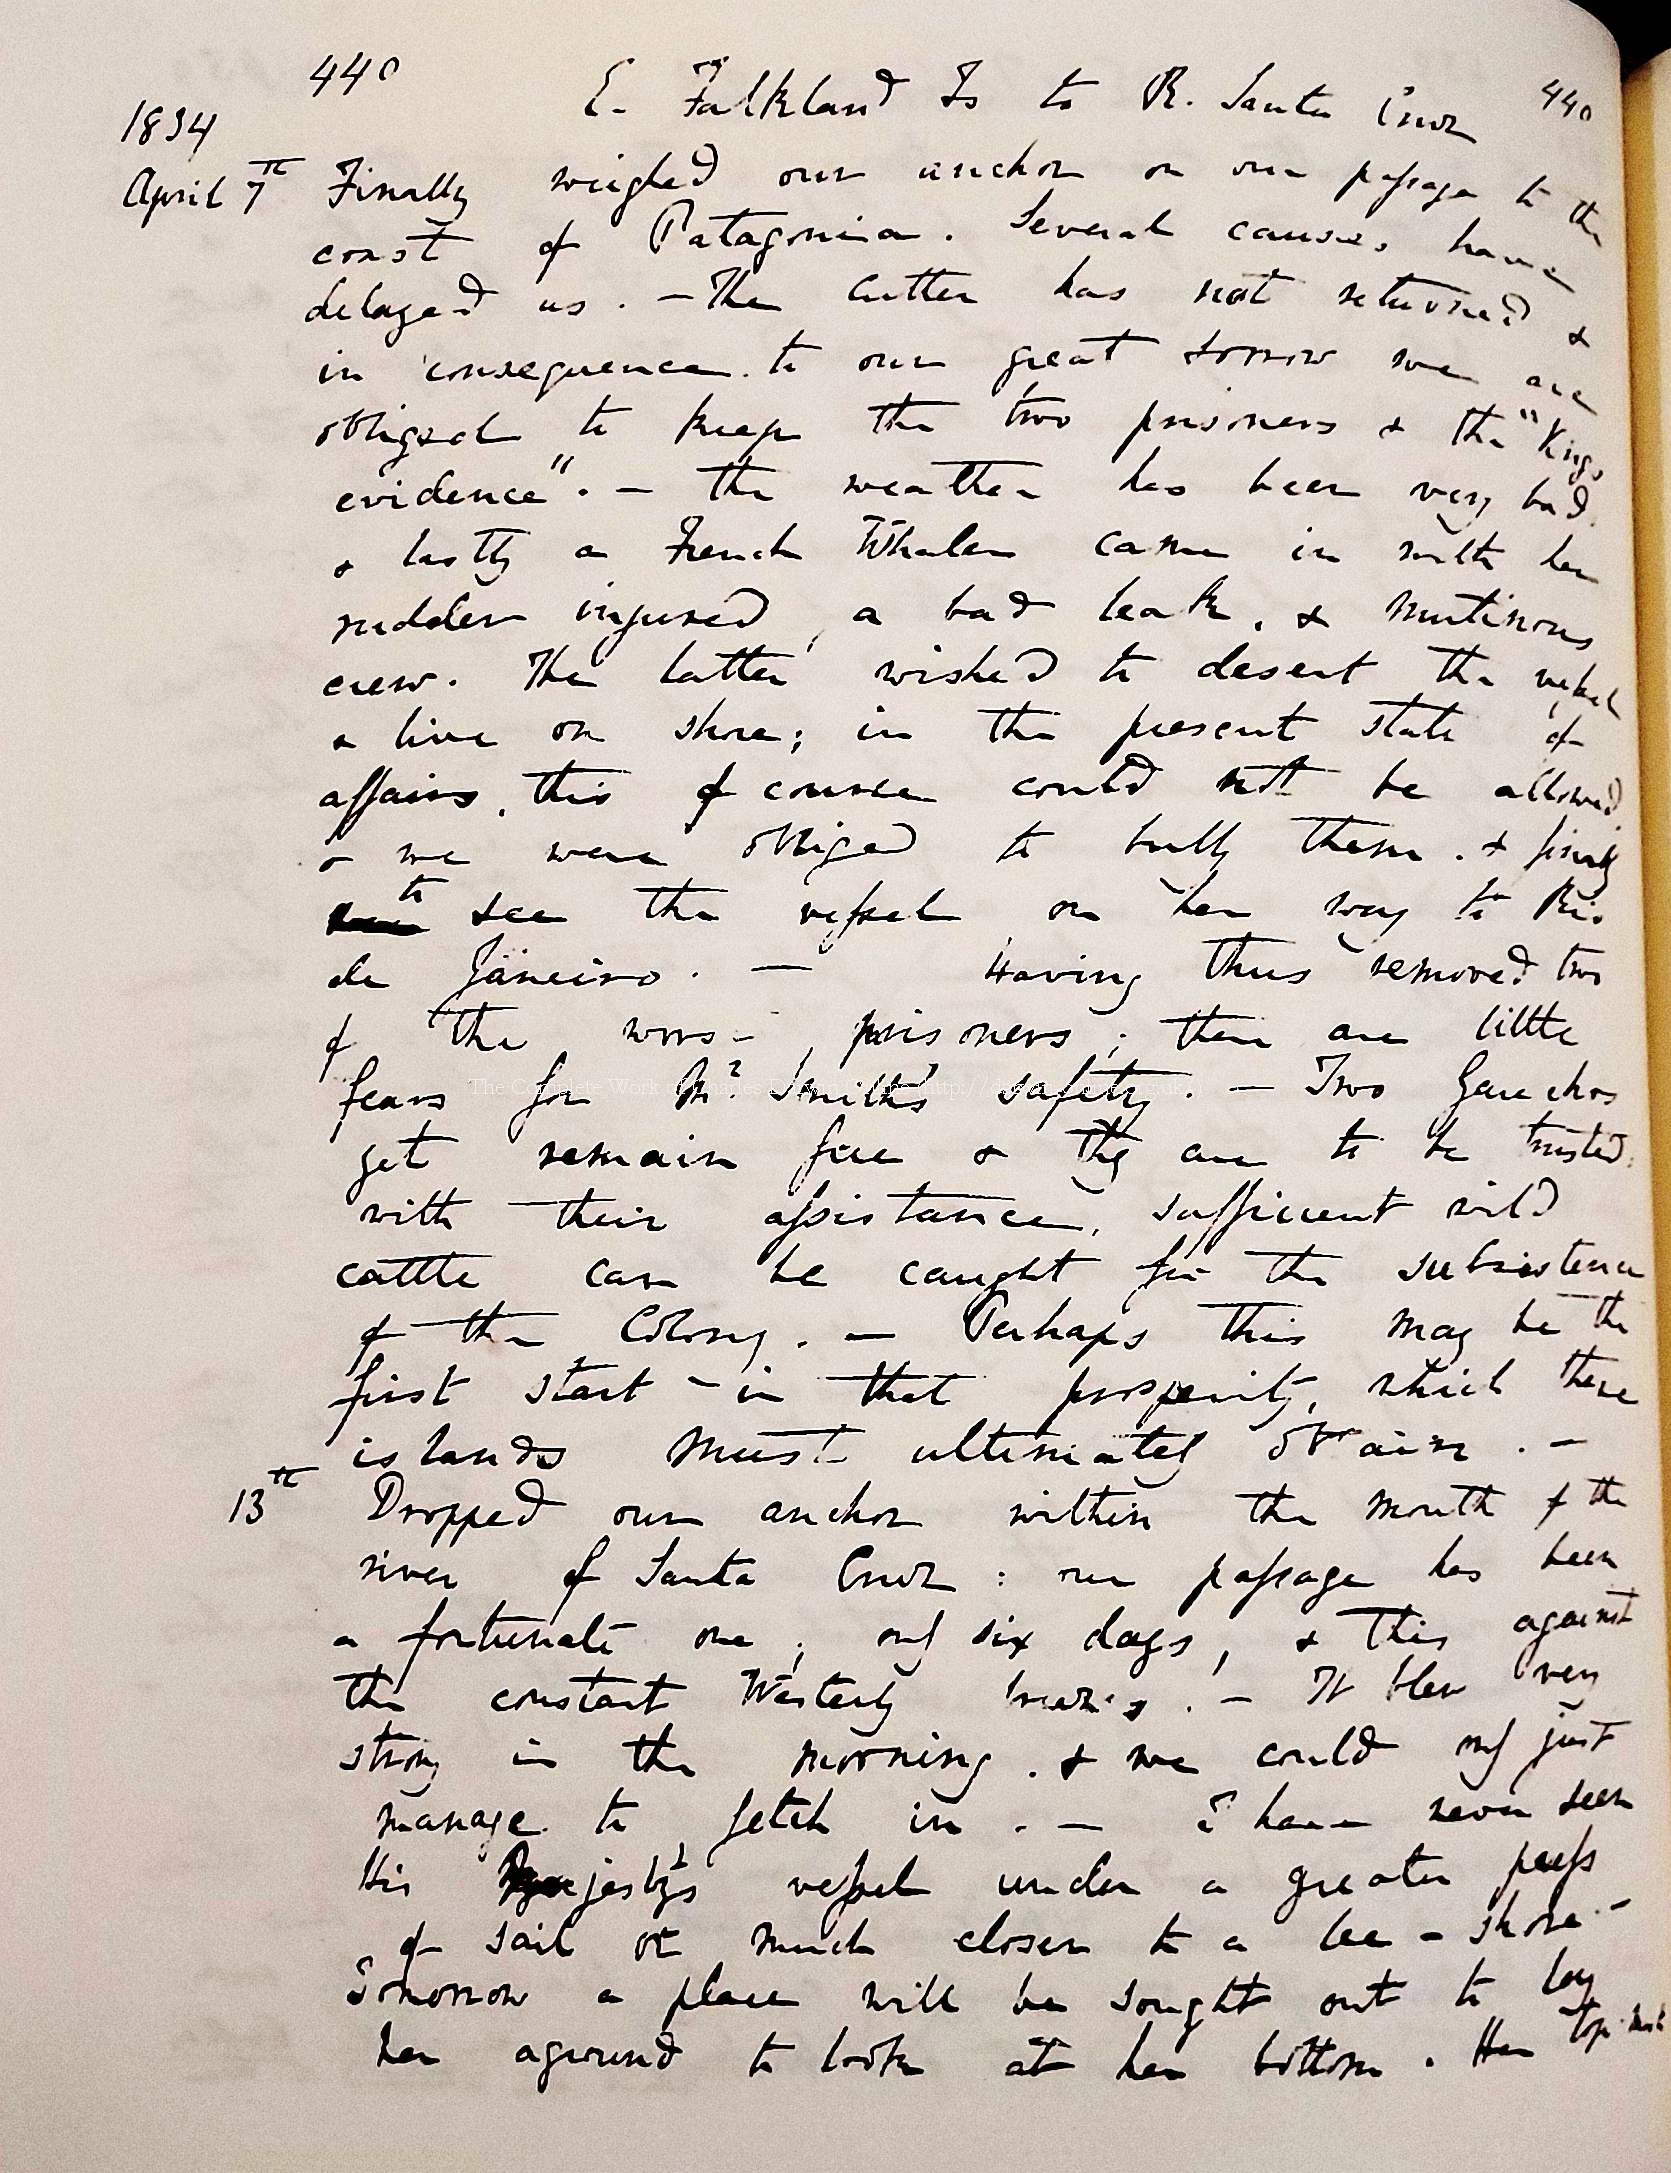 440
E. Falkland Is to R. Santa Cruz 440
1834
April 7th Finally weighed our anchor on our passage to the
coast of Patagonia. Several causes have
delayed us. — The Cutter has not returned &
in consequence to our great sorrow we are
obliged to keep the two prisoners & the "Kings
evidence". — the weather has been very bad.
& lastly a French Whaler came in with her
rudder injured, a bad leak, & mutinous
crew. The latter wished to desert the vessel
& live on shore; in the present state of
affairs, this of course could not be allowed
& we were obliged to bully them. & finally
to see the vessel on her way to Rio
de Janeiro. — Having thus removed two
of the worst prisoners; there are little
fears for Mr Smith's safety. — Two Gauchos
yet remain free & they are to be trusted:
with their assistance, sufficient wild
cattle can be caught for the subsistence
of the Colony. — Perhaps this may be the
first start in that prosperity, which these
islands must ultimately obtain. —
13th Dropped our anchor within the mouth of the
river of Santa Cruz: our passage has been
a fortunate one; only six days, & this against
the constant Westerly breezes. — It blew very
strong in the morning. & we could only just
manage to fetch in. — I have never seen
His Majesty's vessel under a greater press
of sail or much closer to a lee-shore. —
Tomorrow a place will be sought out to lay
her aground to look at her bottom. Her top-mast